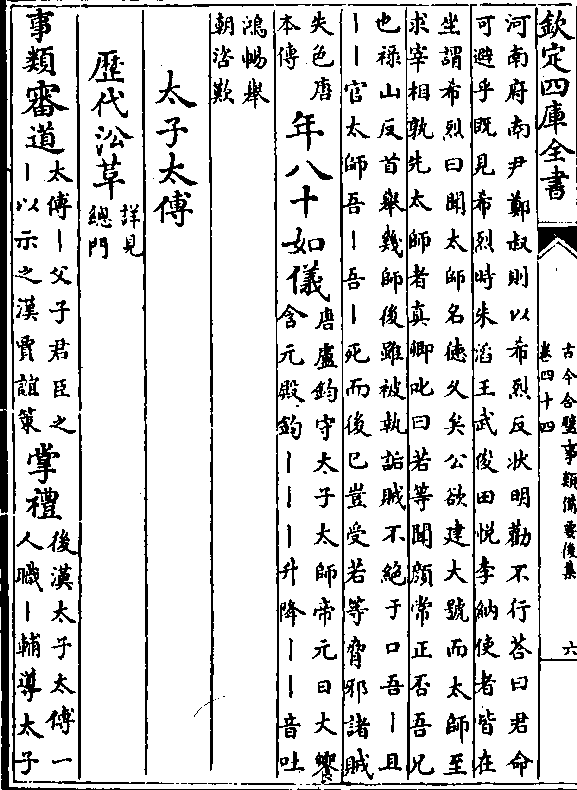 欽定四庫全書
古今合璧事類備要後集
卷四十四
六
河南府南尹鄭叔則以希烈反状明勸不行荅曰君命
可避乎既見希烈時朱滔王武俊田悅李納使者皆在
坐謂希烈曰聞太師名徳久矣公欲建大號而太師至
求宰相孰先太師者真卿叱曰若等聞顔常正否吾兄
也禄山反首舉幾師後雖被執詬賊不絶于口吾丨且
丨丨官太師吾丨吾丨死而後已豈受若等脅邪諸賊
失色唐
本傳
年八十如儀
唐盧鈞守太子太師帝元日大饗
含元殿鈞丨丨丨升降丨丨音吐
鴻暢舉
朝咨歎
太子太傅
歷代沿革
詳見
總門
事類審道
太傅丨父子君臣之
丨以示之漢賈誼策
掌禮
後漢太子太傅一
人職丨輔導太子